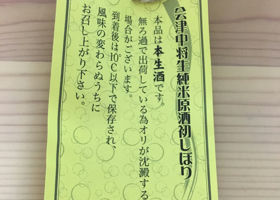 会津中将生純米原酒初しぼり
本品は本生酒です。
無ろ過で出荷している為オリが沈澱する
場合がございます。
到着後は10℃以下で保存され、
風味の変わらぬうちに
お召し上がり下さい。